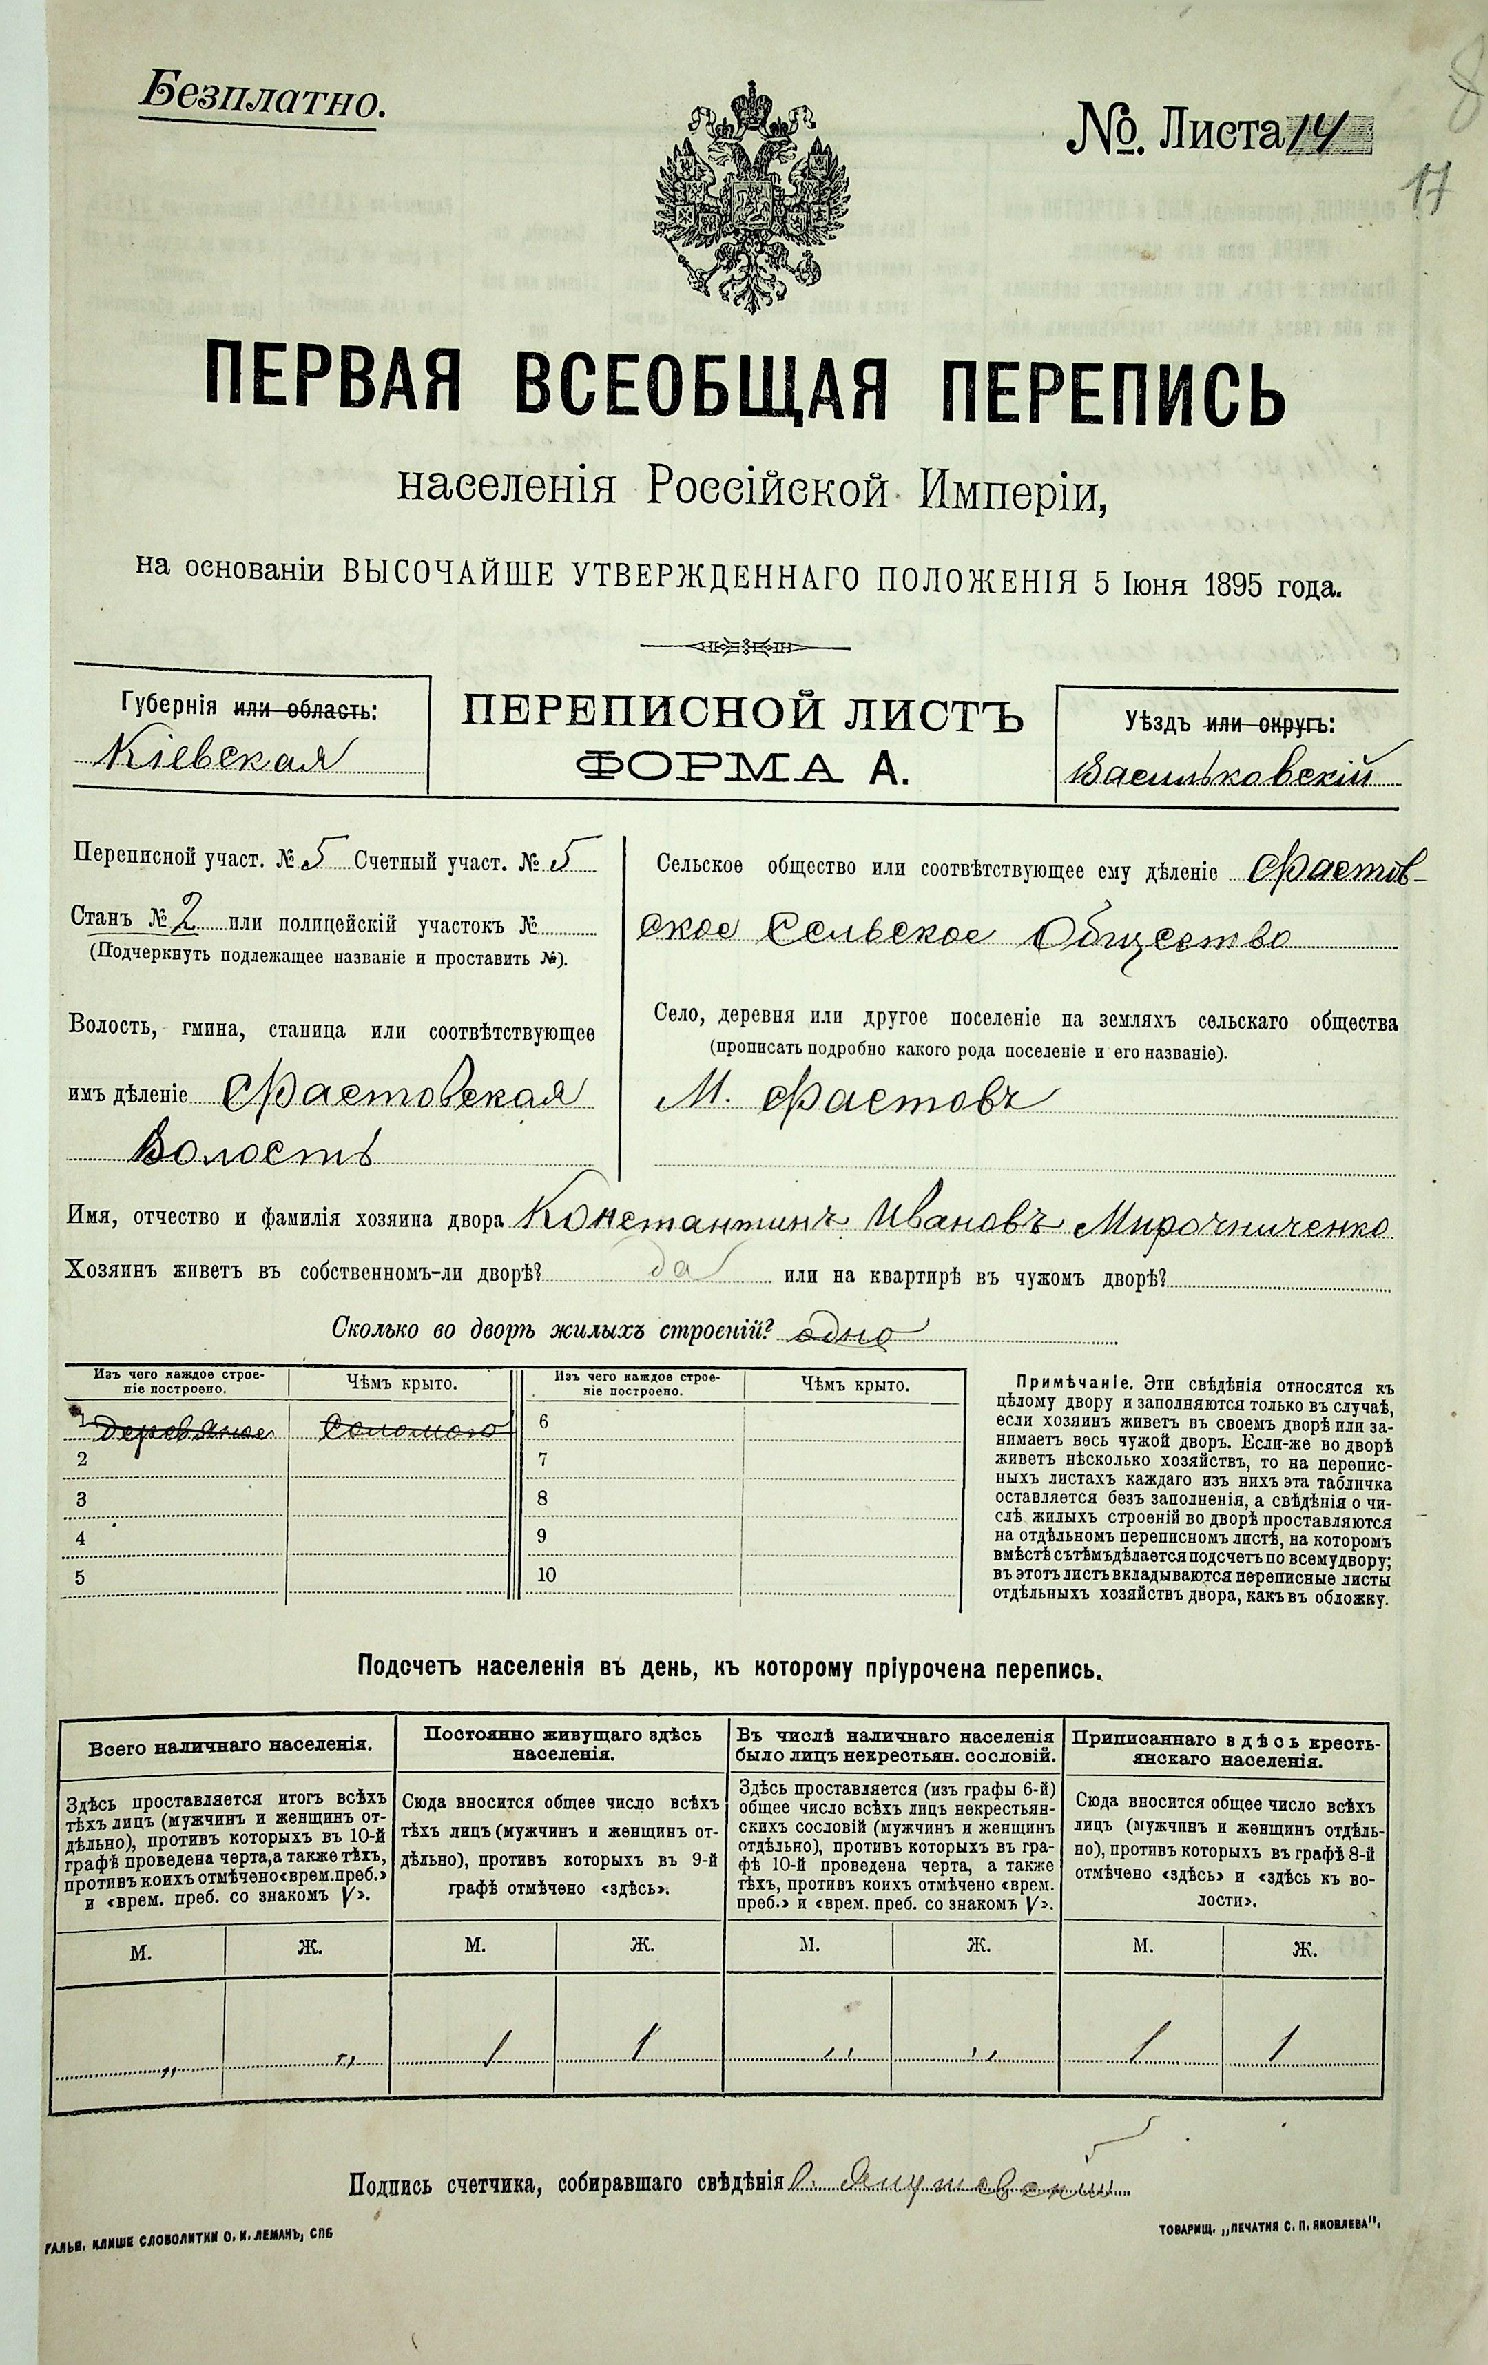 Безплатно.
№. Листа 14
8
17
ПЕРВАЯ ВСЕОБЩАЯ ПЕРЕПИСЬ
населенія Россійской Имперіи,
на основаніи ВЫСОЧАЙШЕ УТВЕРЖДЕННАГО ПОЛОЖЕНІЯ 5 Іюня 1895 года.
Губернія или область:
Кіевская
ПЕРЕПИСНОЙ ЛИСТЪ
ФОРМА А.
Уѣздъ или округъ:
Васильковскій
Переписной участ. № 5 Счетный участ. № 5
Станъ № 2 или полицейскій участокъ №
(Подчеркнуть подлежащее названіе и проставить №).
Волость, гмина, станица или соотвѣтствующее
имъ дѣленіе Фастовская
Волость
Сельское общество или соотвѣтствующее ему дѣленіе Фастов-
ское Сельское Общество
Село, деревня или другое поселеніе на земляхъ сельскаго общества
(прописать подробно какого рода поселеніе и его названіе).
М. Фастовъ
Имя, отчество и фамилія хозяина двора Константинъ Ивановъ Мирочниченко
Хозяинъ живетъ въ собственномъ-ли дворѣ? да или на квартирѣ въ чужомъ дворѣ?
Сколько во дворѣ жилыхъ строеній? одно
Изъ чего каждое строе-
ніе построено.
Чѣмъ крыто.
Изъ чего каждое строе-
ніе построено.
Чѣмъ крыто.
1 деревяное Соломою 6
2 7
3 8
4 9
5 10
Примѣчаніе. Эти свѣдѣнія относятся къ
цѣлому двору и заполняются только въ случаѣ,
если хозяинъ живетъ въ своемъ дворѣ или за-
нимаетъ весь чужой дворъ. Если-же во дворѣ
живетъ нѣсколько хозяйствъ, то на перепис-
ныхъ листахъ каждаго изъ нихъ эта табличка
оставляется безъ заполненія, а свѣдѣнія о чи-
слѣ жилыхъ строеній во дворѣ проставляются
на отдѣльномъ переписномъ листѣ, на которомъ
вмѣстѣ съ тѣмъ дѣлается подсчетъ по всему двору;
въ этотъ листъ вкладываются переписные листы
отдѣльныхъ хозяйствъ двора, какъ въ обложку.
Подсчетъ населенія въ день, къ которому пріурочена перепись.
Всего наличнаго населенія.
Здѣсь проставляется итогъ всѣхъ
тѣхъ лицъ (мужчинъ и женщинъ от-
дѣльно), противъ которыхъ въ 10-й
графѣ проведена черта, а также тѣхъ,
противъ коихъ отмѣчено «врем. преб.»
и «врем. преб. со знакомъ V».
Постоянно живущаго здѣсь
населенія.
Сюда вносится общее число всѣхъ
тѣхъ лицъ (мужчинъ и женщинъ от-
дѣльно), противъ которыхъ въ 9-й
графѣ отмѣчено «здѣсь».
Въ числѣ наличнаго населенія
было лицъ некрестьян. сословій.
Здѣсь проставляется (изъ графы 6-й)
общее число всѣхъ лицъ некрестьян-
скихъ сословій (мужчинъ и женщинъ
отдѣльно), противъ которыхъ въ гра-
фѣ 10-й проведена черта, а также
тѣхъ, противъ коихъ отмѣчено «врем.
преб.» и «врем. преб. со знакомъ V».
Приписаннаго здѣсь кресть-
янскаго населенія.
Сюда вносится общее число всѣхъ
лицъ (мужчинъ и женщинъ отдѣль-
но), противъ которыхъ въ графѣ 8-й
отмѣчено «здѣсь» и «здѣсь къ во-
лости».
М. Ж. М. Ж. М. Ж. М. Ж.
„ „ 1 1 „ „ 1 1
Подпись счетчика, собиравшаго свѣдѣнія
ГАЛЬВ. КЛИШЕ СЛОВОЛИТНИ О. И. ЛЕМАНЪ, СПБ
ТОВАРИЩ. „ПЕЧАТНЯ С. П. ЯКОВЛЕВА“.